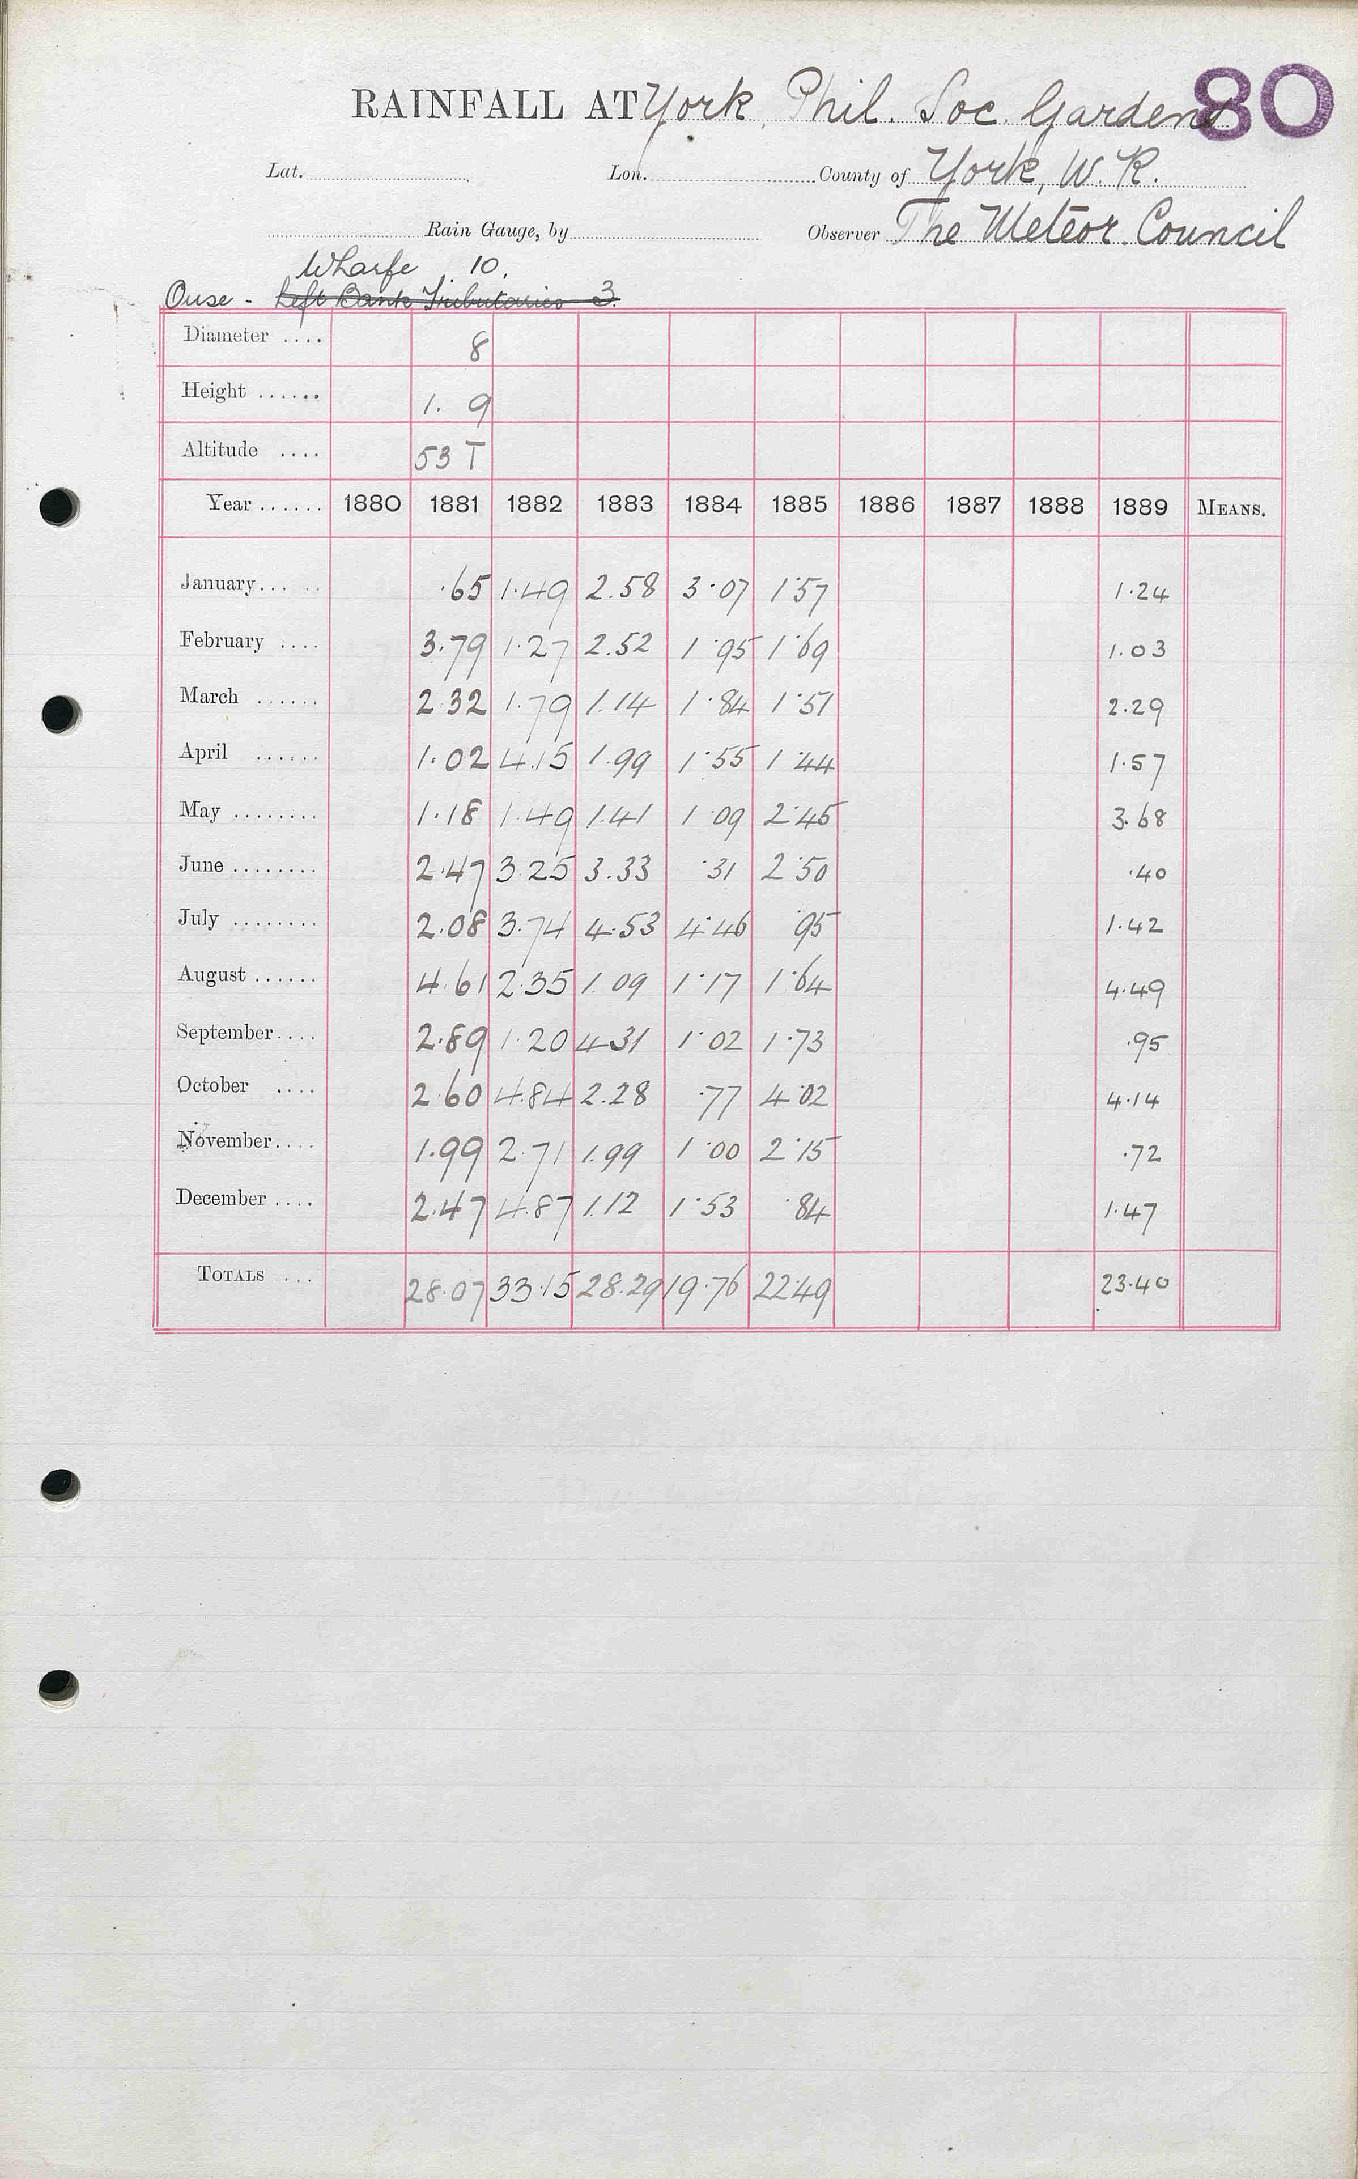 80
RAINFALL AT York, Phil. Soc. Gardens
Lat. Lon. County of York, W. R.
Rain Gauge, by Observer The Meteor. Council
Wharfe 10.
Ouse - Left Bank Tributaries 3.
Diameter .... 8
Height ...... 1. 9
Altitude .... 53 T
Year ...... 1880 1881 1882 1883 1884 1885 1886 1887 1888 1889 MEANS.
January... .. .65 1.49 2.58 3.07 1.57 1.24
February .... 3.79 1.27 2.52 1.95 1.69 1.03
March ...... 2.32 1.79 1.14 1.84 1.51 2.29
April ...... 1.02 4.15 1.99 1.55 1.44 1.57
May ........ 1.18 1.49 1.41 1.09 2.45 3.68
June ........ 2.47 3.25 3.33 .31 2.50 .40
July ........ 2.08 3.74 4.53 4.46 .95 1.42
August ...... 4.61 2.35 1.09 1.17 1.64 4.49
September.... 2.89 1.20 4.31 1.02 1.73 .95
October .... 2.60 4.84 2.28 .77 4.02 4.14
November.... 1.99 2.71 1.99 1.00 2.15 .72
December .... 2.47 4.87 1.12 1.53 .84 1.47
TOTALS ... 28.07 33.15 28.29 19.76 22.49 23.40